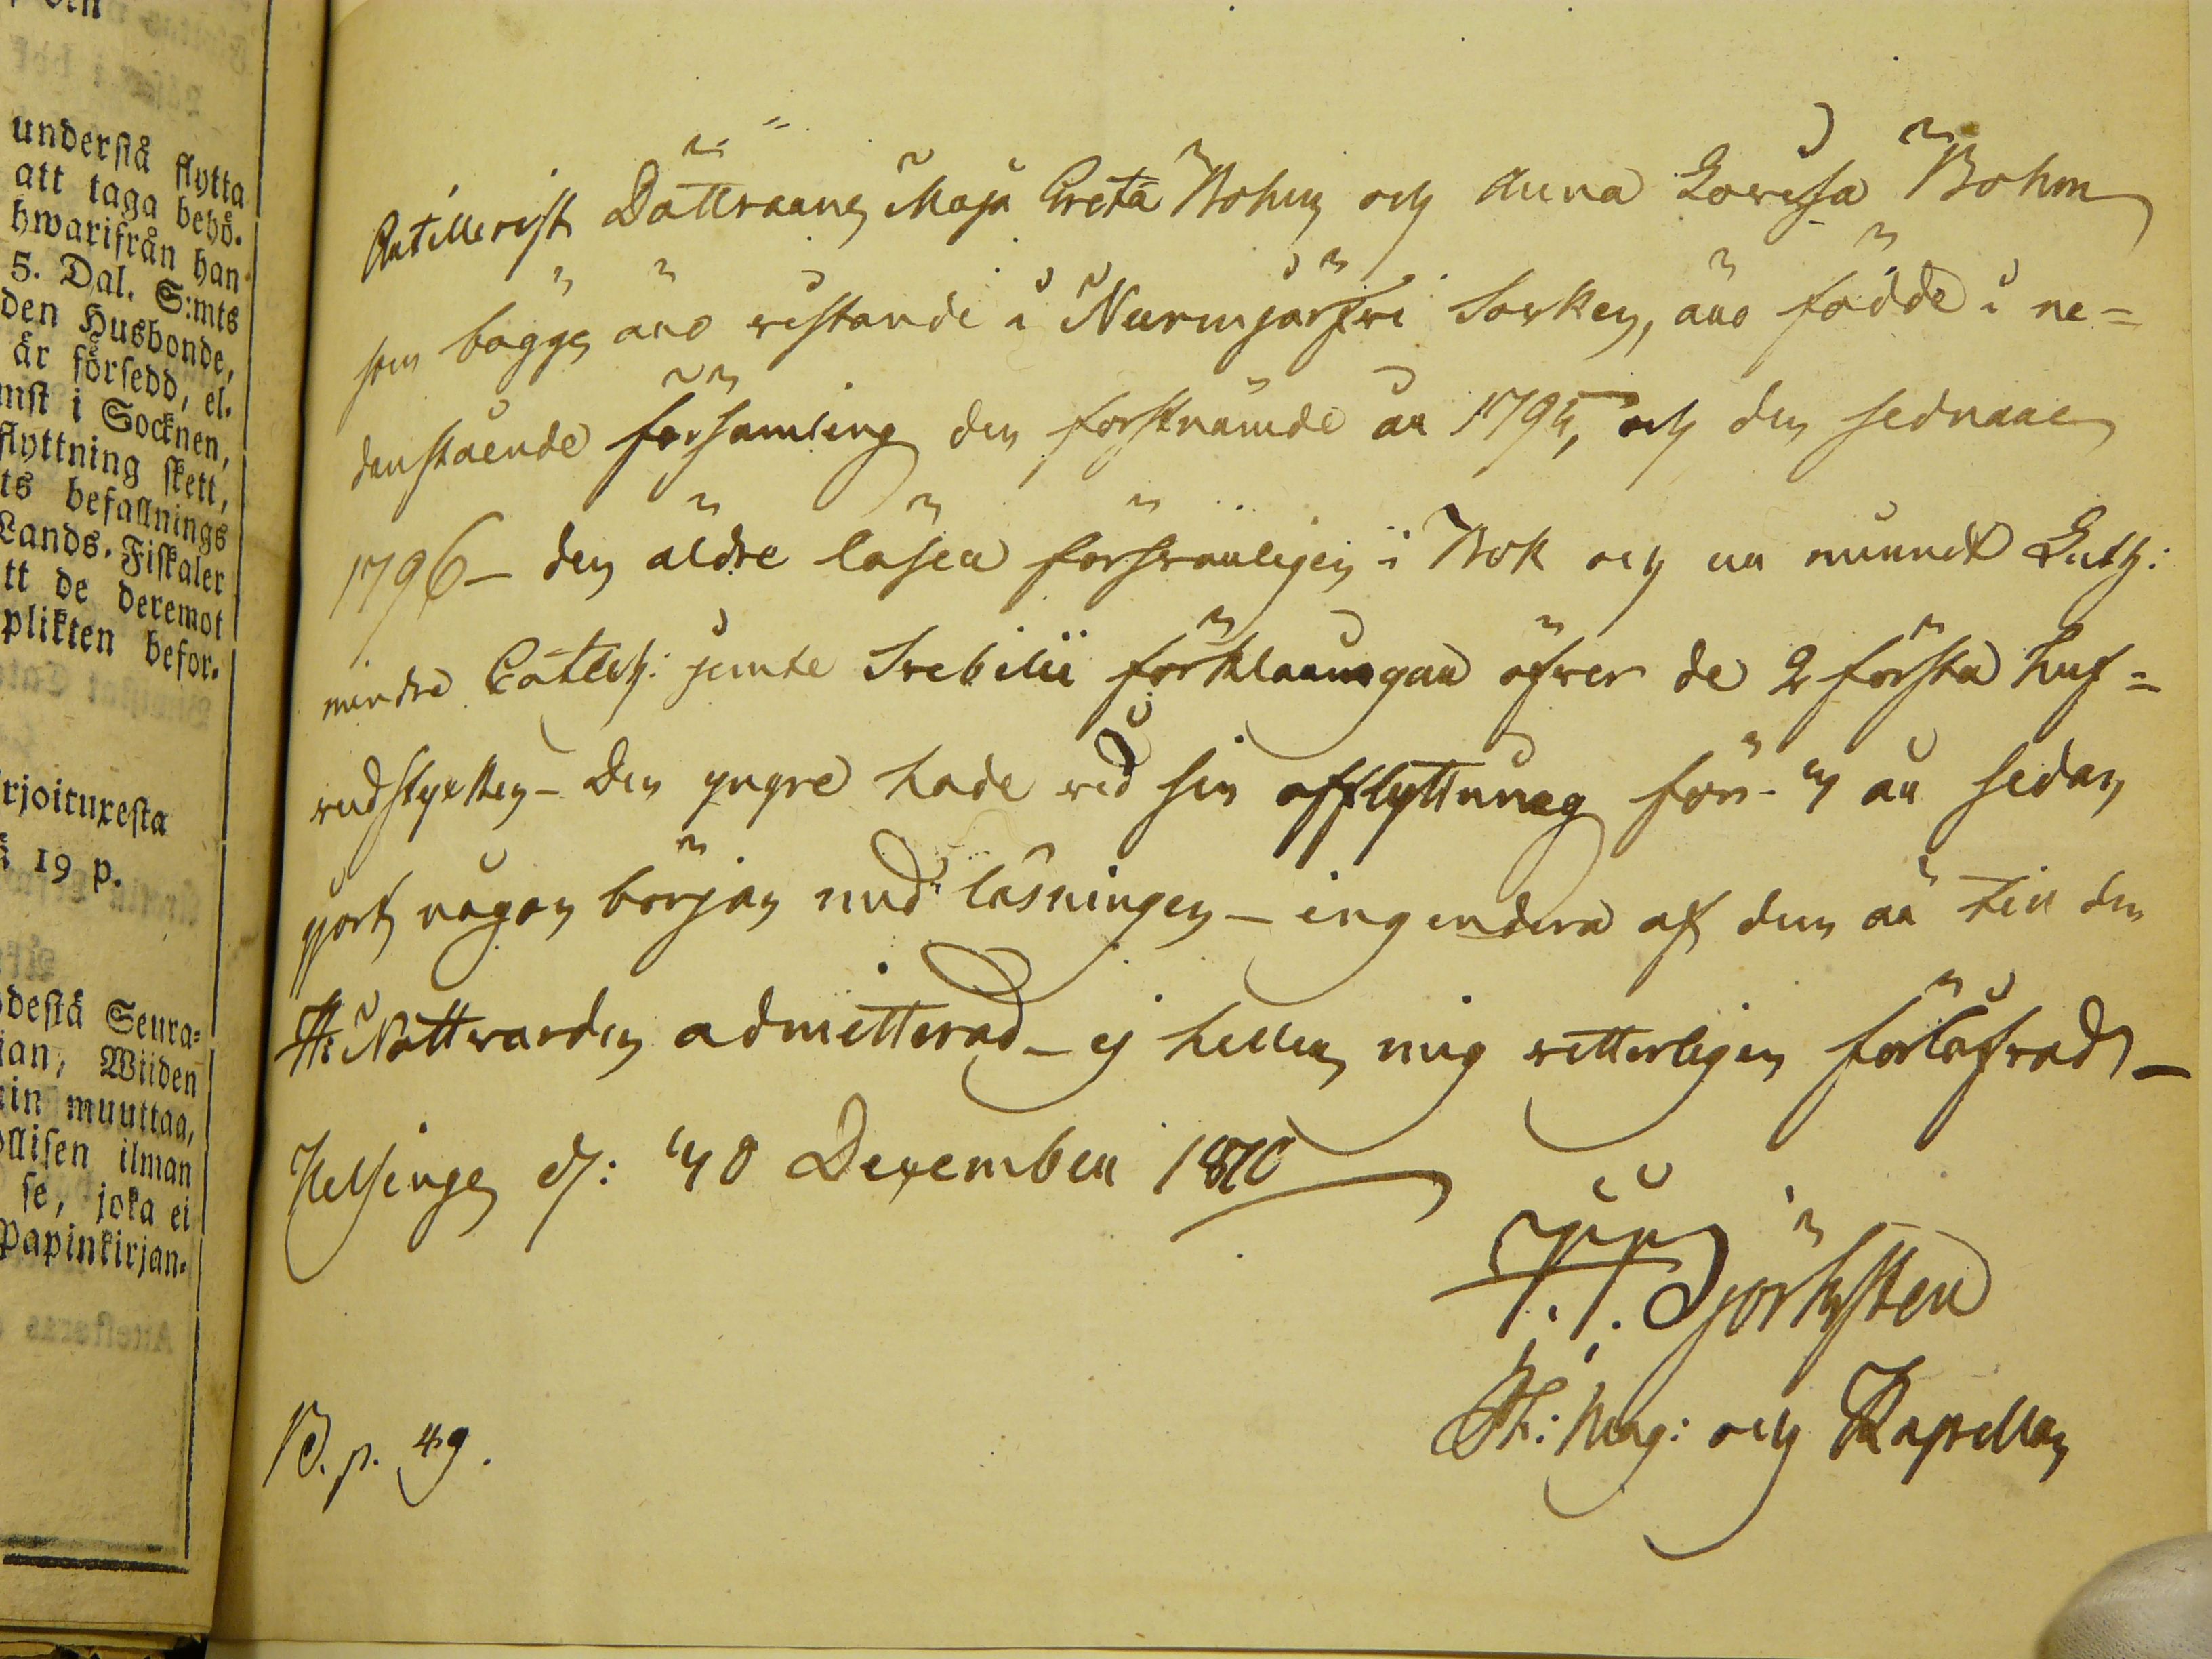 understå flytta
att taga behö-
hwarifrån han
5. Dal. S:mts
den Husbonde,
är försedd, el-
mst i Socknen,
flyttning skett,
ts befallnings
Lands-Fiskaler
tt de deremot
plikten befor-
rjoituxesta
19 p.
destä Seura-
jan, Wiiden
ain muuttaa,
ollisen ilman
se, joka ei
Papinkirjan-
Artillerist Döttrarna Maja Greta Bohm och Anna Lovisa Bohm
som bägge äro vistande i Nurmijärfvi Socken, äro födde i ne=
danstående församling den förstnämde år 1795, och den sednare
1796 – den äldre läser försvarligen i Bok och ur minnet Luth:
mindre Catech: jemte Svebilii förklaringar öfver de 2 första huf=
vudstycken – Den yngre hade vid sin afflyttning för 4 år sedan
gjort någon början med läsningen – ingendera af dem är till den
H: Nattvarden admitterad – ej heller mig vitterligen förlofvad –
Helsinge d: 40 December 1810
Björksten
och Kapellan
B. p. 49.